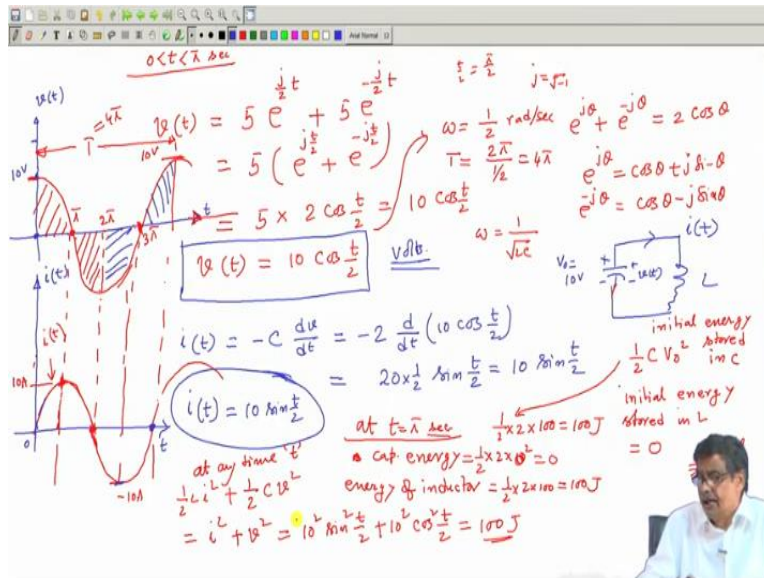 Arial Normal 12
0 < t < π sec
π/2 = π/2
j = √-1
v(t)
T = 4π
10V
10V
π
2π
3π
t
v(t) = 5 e^{j/2 t} + 5 e^{-j/2 t}
= 5 ( e^{j t/2} + e^{-j t/2} )
= 5 × 2 cos t/2 = 10 cos t/2
v(t) = 10 cos t/2 volt.
ω = 1/2 rad/sec
T = 2π / 1/2 = 4π
e^{jθ} + e^{-jθ} = 2 cos θ
e^{jθ} = cos θ + j sin θ
e^{-jθ} = cos θ - j sin θ
ω = 1/√LC
i(t)
V₀ = 10V
+ - + - v(t)
L
i(t)
i(t)
10A
0
-10A
t
i(t) = -C dv/dt = -2 d/dt (10 cos t/2)
= 20 × 1/2 sin t/2 = 10 sin t/2
i(t) = 10 sin t/2
initial energy stored in C
1/2 C V₀²
1/2 × 2 × 100 = 100 J
initial energy stored in L
= 0
at t = π sec
cap. energy = 1/2 × 2 × 0² = 0
energy of inductor = 1/2 × 2 × 100 = 100 J
at any time 't'
1/2 L i² + 1/2 C v²
= i² + v² = 10² sin² t/2 + 10² cos² t/2 = 100 J